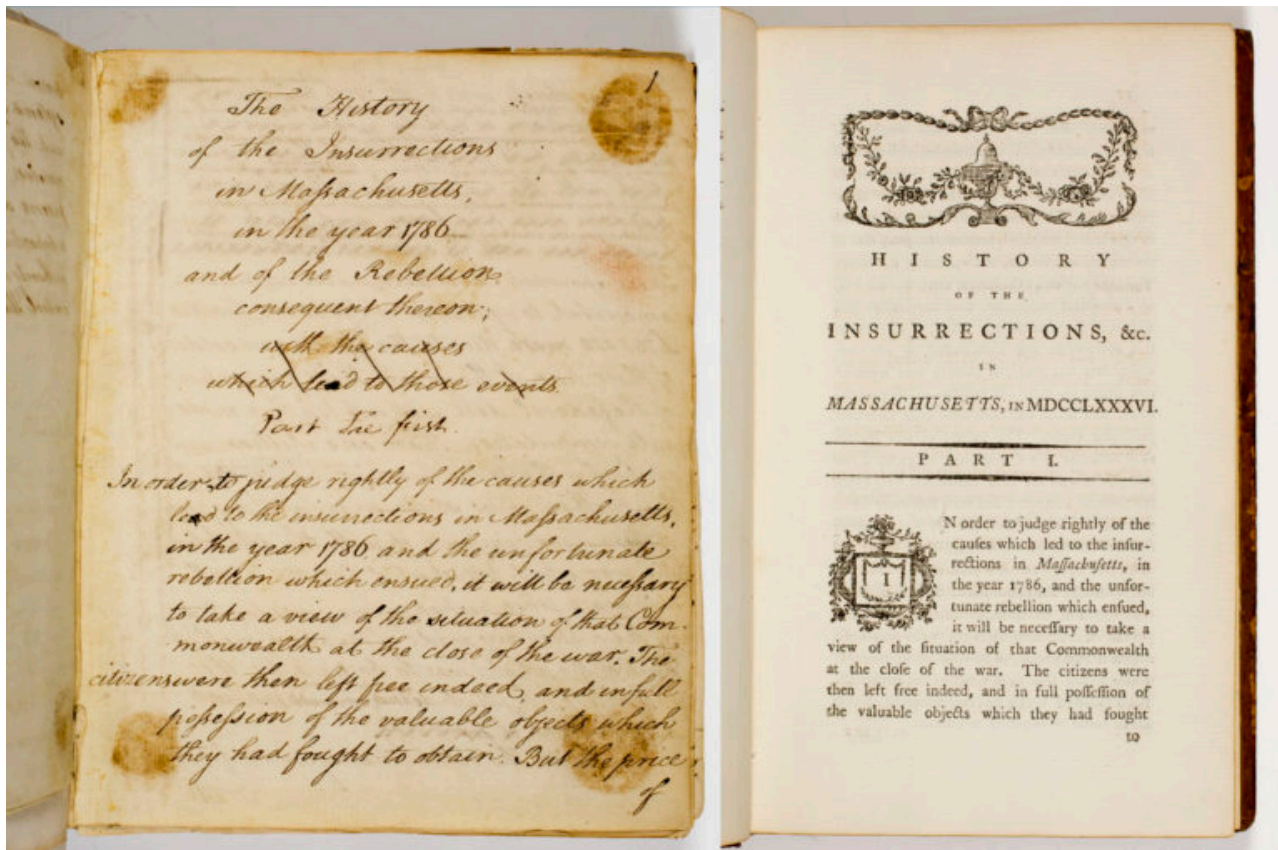 1
The History
of the Insurrections
in Maſsachusetts,
in the year 1786
and of the Rebellion
consequent thereon;
with the causes
which lead to those events.
Part The first.
In order to judge rightly of the causes which
lead to the insurrections in Maſsachusetts,
in the year 1786 and the unfortunate
rebellion which ensued, it will be neceſsary
to take a view of the situation of that Com-
monwealth at the close of the war. The
citizens were then left free indeed, and in full
poſseſsion of the valuable objects which
they had fought to obtain. But the price
of
HISTORY
OF THE
INSURRECTIONS, &c.
IN
MASSACHUSETTS, IN MDCCLXXXVI.
PART I.
IN order to judge rightly of the
cauſes which led to the inſur-
rections in Maſſachuſetts, in
the year 1786, and the unfor-
tunate rebellion which enſued,
it will be neceſſary to take a
view of the ſituation of that Commonwealth
at the cloſe of the war. The citizens were
then left free indeed, and in full poſſeſſion of
the valuable objects which they had fought
to